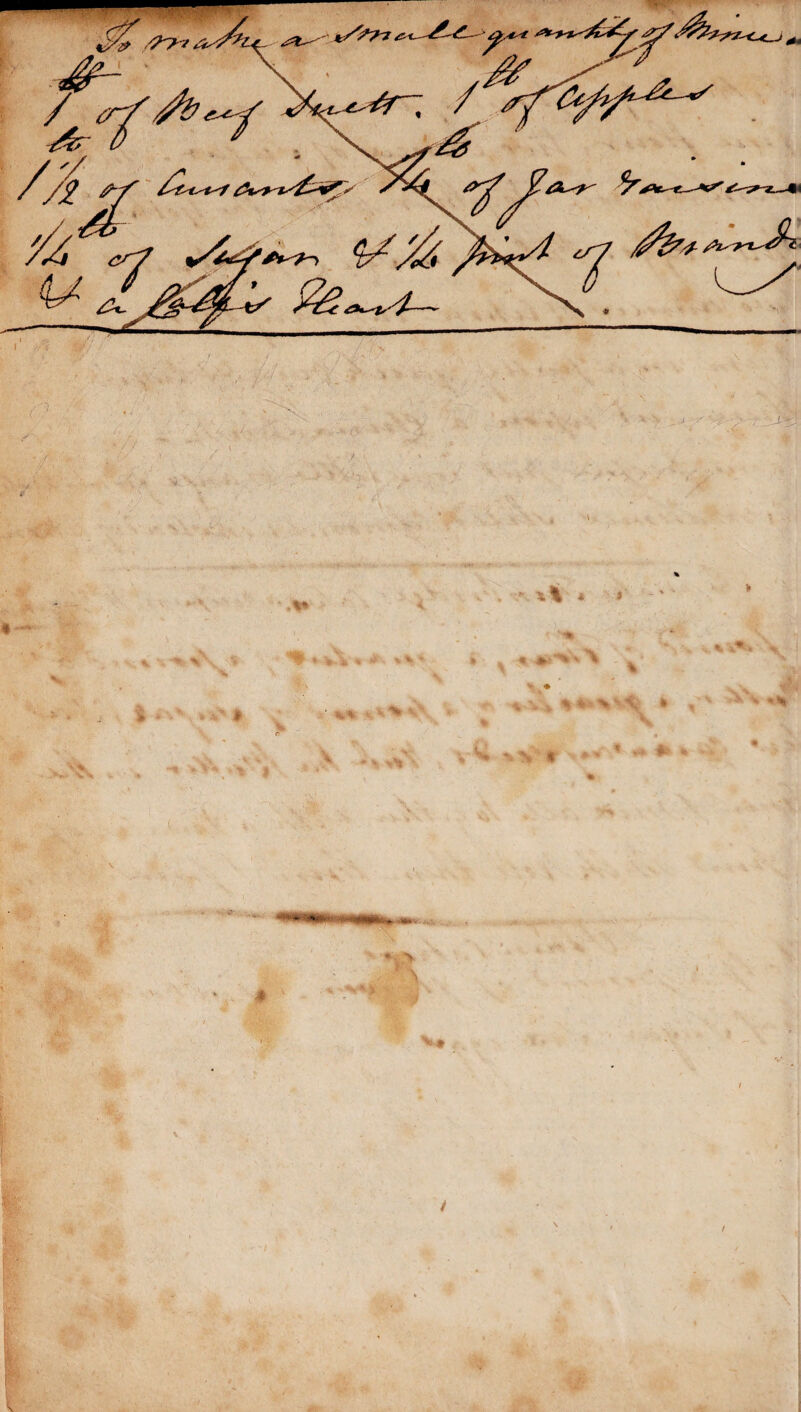 To make a small quantity of Mince
1 lb of Beef Suett. 1 lb of Apples
1 1/2 lb of Currants, 1/4 lb of Jar raisins
1/4 lb of Sugar & 1/4 pint of Brandy
& a Calf's Heart